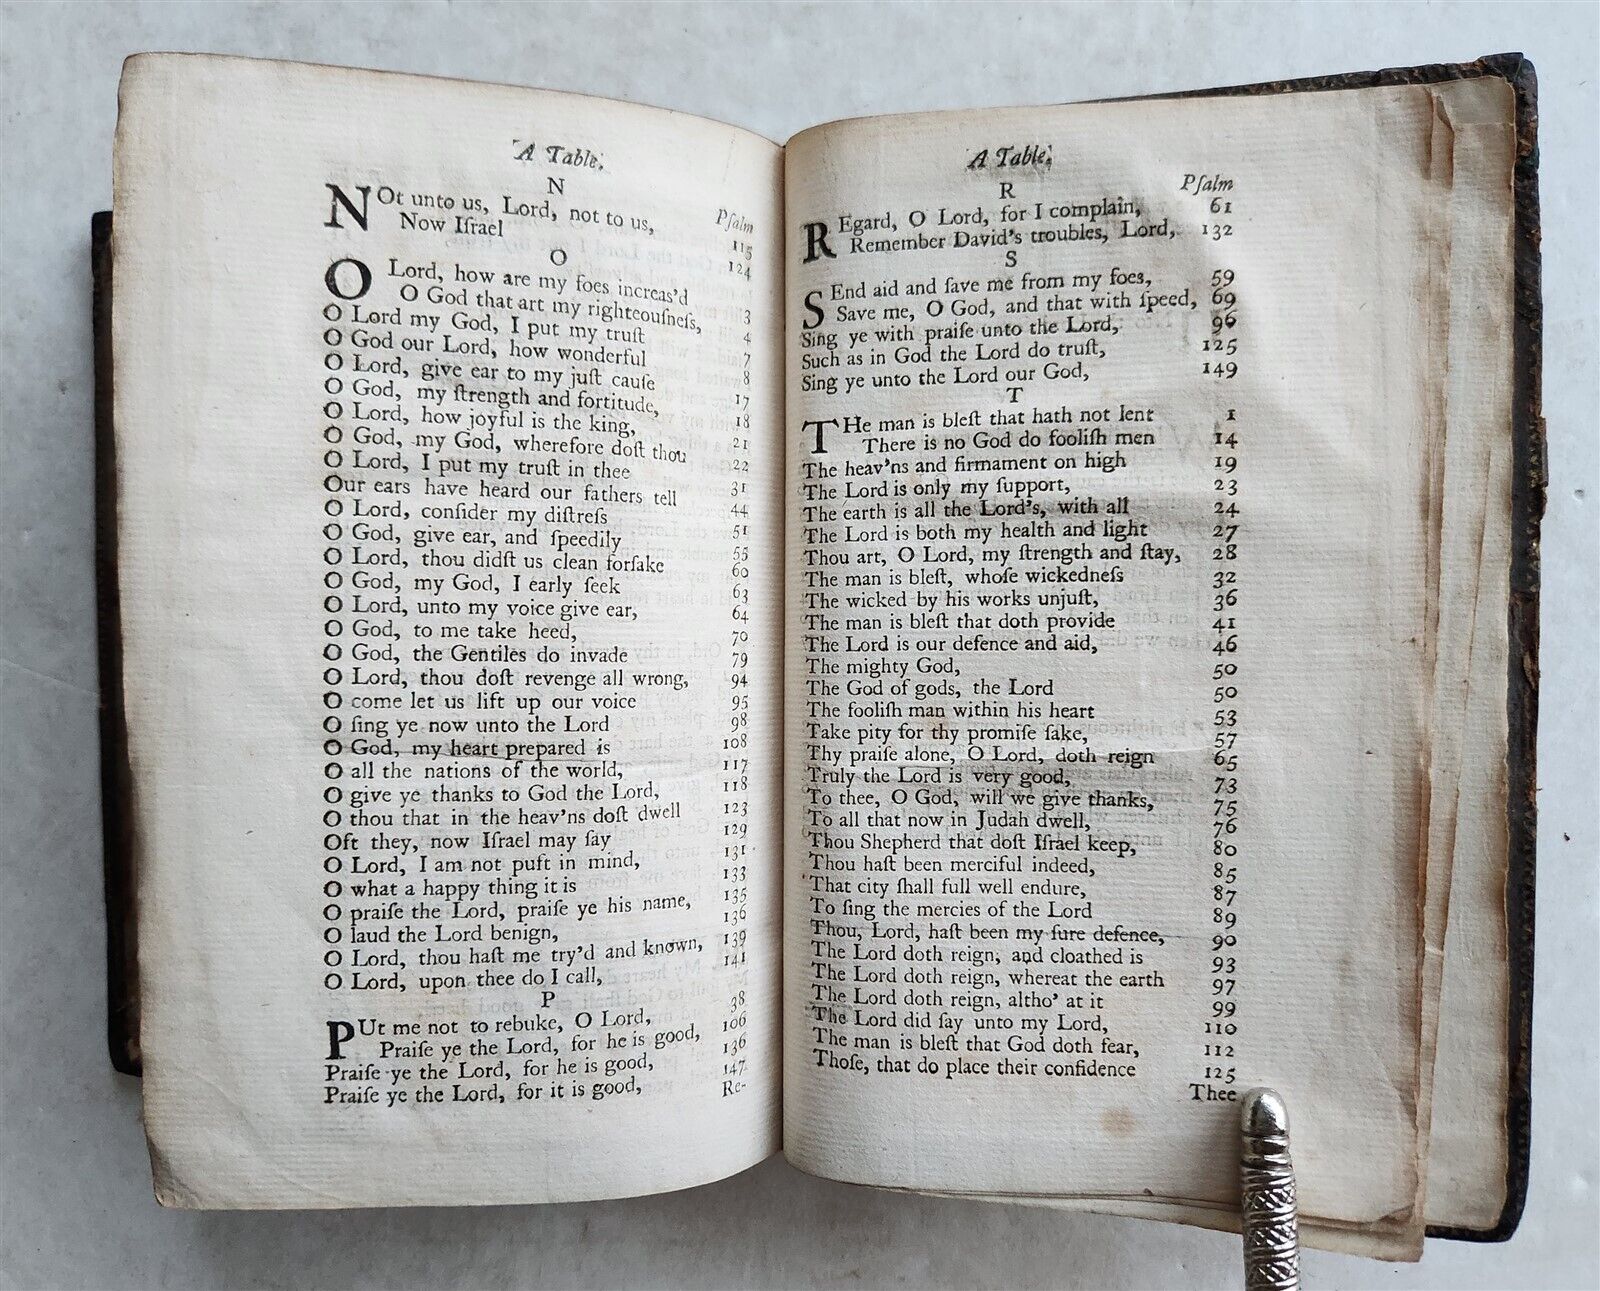 A Table.
N
Psalm
NOt unto us, Lord, not to us, 115
Now Iſrael 124
O
O Lord, how are my foes increas'd 3
O God that art my righteouſneſs, 4
O Lord my God, I put my truſt 7
O God our Lord, how wonderful 8
O Lord, give ear to my juſt cauſe 17
O God, my ſtrength and fortitude, 18
O Lord, how joyful is the king, 21
O God, my God, wherefore doſt thou 22
O Lord, I put my truſt in thee 31
Our ears have heard our fathers tell 44
O Lord, conſider my diſtreſs 51
O God, give ear, and ſpeedily 55
O Lord, thou didſt us clean forſake 60
O God, my God, I early ſeek 63
O Lord, unto my voice give ear, 64
O God, to me take heed, 70
O God, the Gentiles do invade 79
O Lord, thou doſt revenge all wrong, 94
O come let us lift up our voice 95
O ſing ye now unto the Lord 98
O God, my heart prepared is 108
O all the nations of the world, 117
O give ye thanks to God the Lord, 118
O thou that in the heav'ns doſt dwell 123
Oft they, now Iſrael may ſay 129
O Lord, I am not puft in mind, 131
O what a happy thing it is 133
O praiſe the Lord, praiſe ye his name, 135
O laud the Lord benign, 136
O Lord, thou haſt me try'd and known, 139
O Lord, upon thee do I call, 141
P
PUt me not to rebuke, O Lord, 38
Praiſe ye the Lord, for he is good, 106
Praiſe ye the Lord, for he is good, 136
Praiſe ye the Lord, for it is good, 147
Re-
A Table.
R
Pſalm
REgard, O Lord, for I complain, 61
Remember David's troubles, Lord, 132
S
SEnd aid and ſave me from my foes, 59
Save me, O God, and that with ſpeed, 69
Sing ye with praiſe unto the Lord, 96
Such as in God the Lord do truſt, 125
Sing ye unto the Lord our God, 149
T
THe man is bleſt that hath not lent 1
There is no God do fooliſh men 14
The heav'ns and firmament on high 19
The Lord is only my ſupport, 23
The earth is all the Lord's, with all 24
The Lord is both my health and light 27
Thou art, O Lord, my ſtrength and ſtay, 28
The man is bleſt, whoſe wickedneſs 32
The wicked by his works unjuſt, 36
The man is bleſt that doth provide 41
The Lord is our defence and aid, 46
The mighty God, 50
The God of gods, the Lord 50
The fooliſh man within his heart 53
Take pity for thy promiſe ſake, 57
Thy praiſe alone, O Lord, doth reign 65
Truly the Lord is very good, 73
To thee, O God, will we give thanks, 75
To all that now in Judah dwell, 76
Thou Shepherd that doſt Iſrael keep, 80
Thou haſt been merciful indeed, 85
That city ſhall full well endure, 87
To ſing the mercies of the Lord 89
Thou, Lord, haſt been my ſure defence, 90
The Lord doth reign, and cloathed is 93
The Lord doth reign, whereat the earth 97
The Lord doth reign, altho' at it 99
The Lord did ſay unto my Lord, 110
The man is bleſt that God doth fear, 112
Thoſe, that do place their confidence 125
Thee